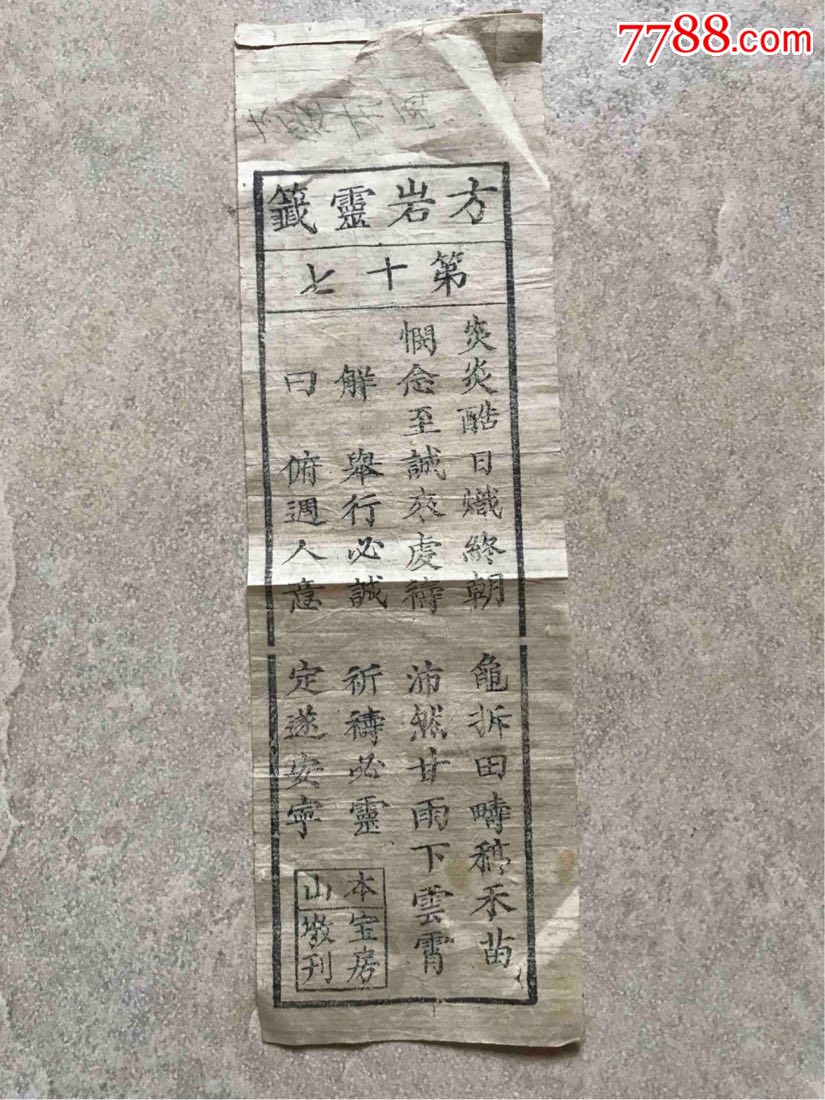 7788.com
方岩靈籤
第十七
炎炎酷日熾終朝 龜拆田疇稿禾苗
憫念至誠來虔禱 沛然甘雨下雲霄
解 舉行必誠 祈禱必靈
曰 俯週人意 定遂安寧
本宝房
山墩刊